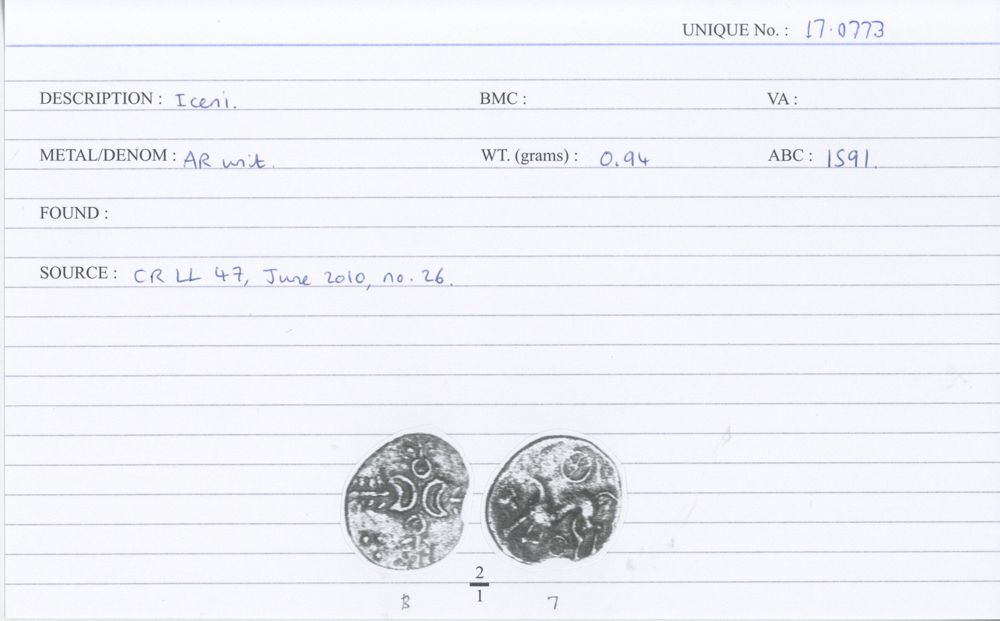 UNIQUE No. : 17.0773
DESCRIPTION : Iceni. BMC : VA :
METAL/DENOM : AR unit. WT. (grams) : 0.94 ABC : 1591.
FOUND :
SOURCE : CR LL 47, June 2010, no. 26.
2
1
B 7